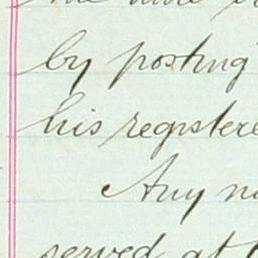 by posting
his registere
Any no
served at